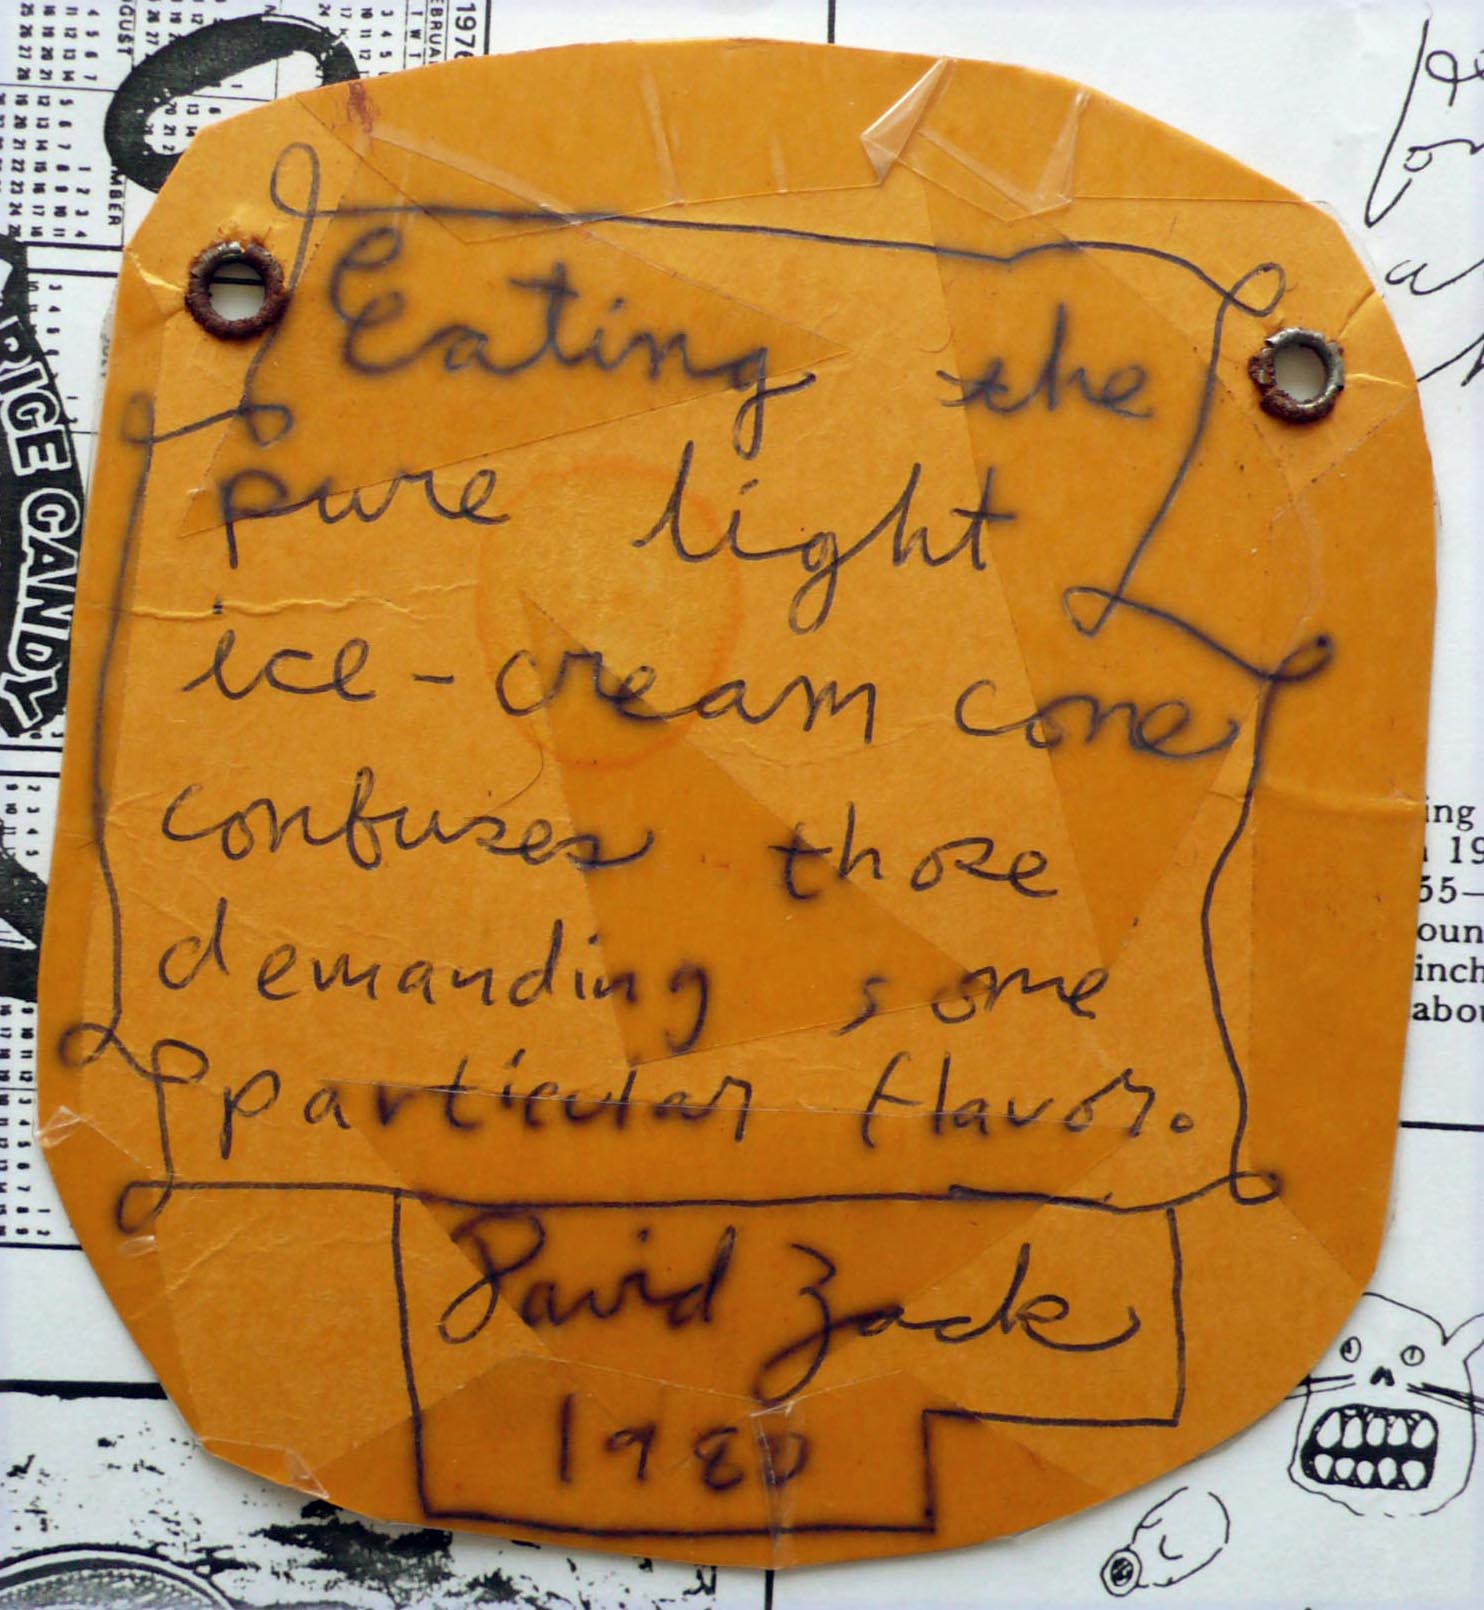 Eating the
pure light
ice-cream cone
confuses those
demanding some
particular flavor.
David Zack
1980
1976
CANDY
MBER
ing
19
55—
oun
inch
abou